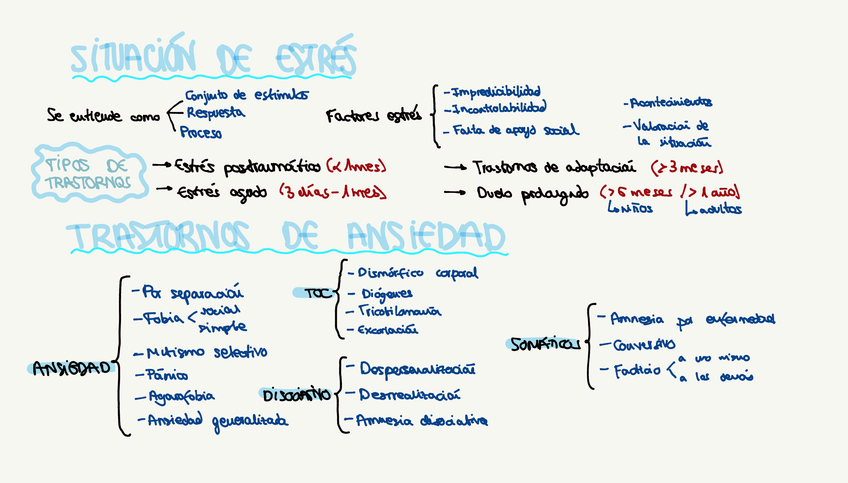 SITUACIÓN DE ESTRÉS
Se entiende como
Conjunto de estímulos
Respuesta
Proceso
Factores estrés
- Impredicibilidad
- Incontrolabilidad
- Falta de apoyo social
- Acontecimientos
- Valoración de
la situación
TIPOS DE
TRASTORNOS
→ Estrés postraumático (< 1 mes)
→ Estrés agudo (3 días - 1 mes)
→ Trastornos de adaptación (≥ 3 meses)
→ Duelo prolongado (> 6 meses / > 1 año)
↳ niños ↳ adultos
TRASTORNOS DE ANSIEDAD
ANSIEDAD
- Por separación
- Fobia < social
simple
- Mutismo selectivo
- Pánico
- Agorafobia
- Ansiedad generalizada
TOC
- Dismórfico corporal
- Diógenes
- Tricotilomanía
- Excoriación
DISOCIATIVO
- Despersonalización
- Desrealización
- Amnesia disociativa
SOMÁTICOS
- Amnesia por enfermedad
- Conversivo
- Facticio < a uno mismo
a los demás